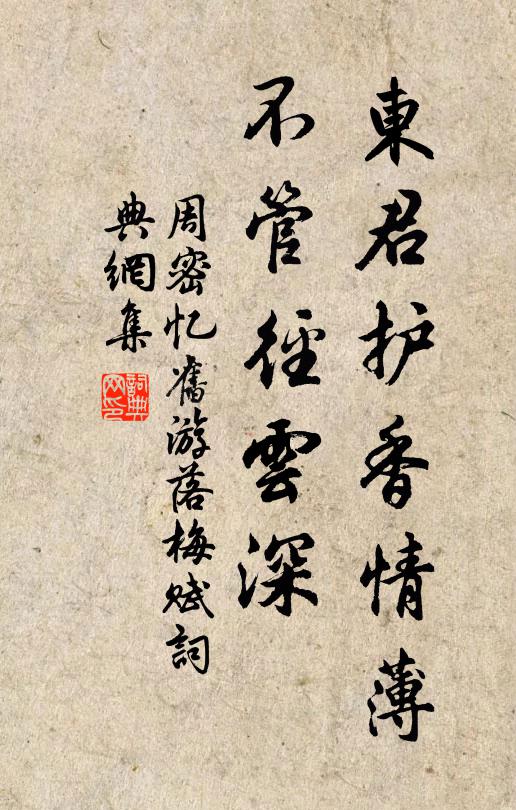 東君护香情薄
不管徑雲深
周密忆舊游落梅赋詞
典網集
詞典網印